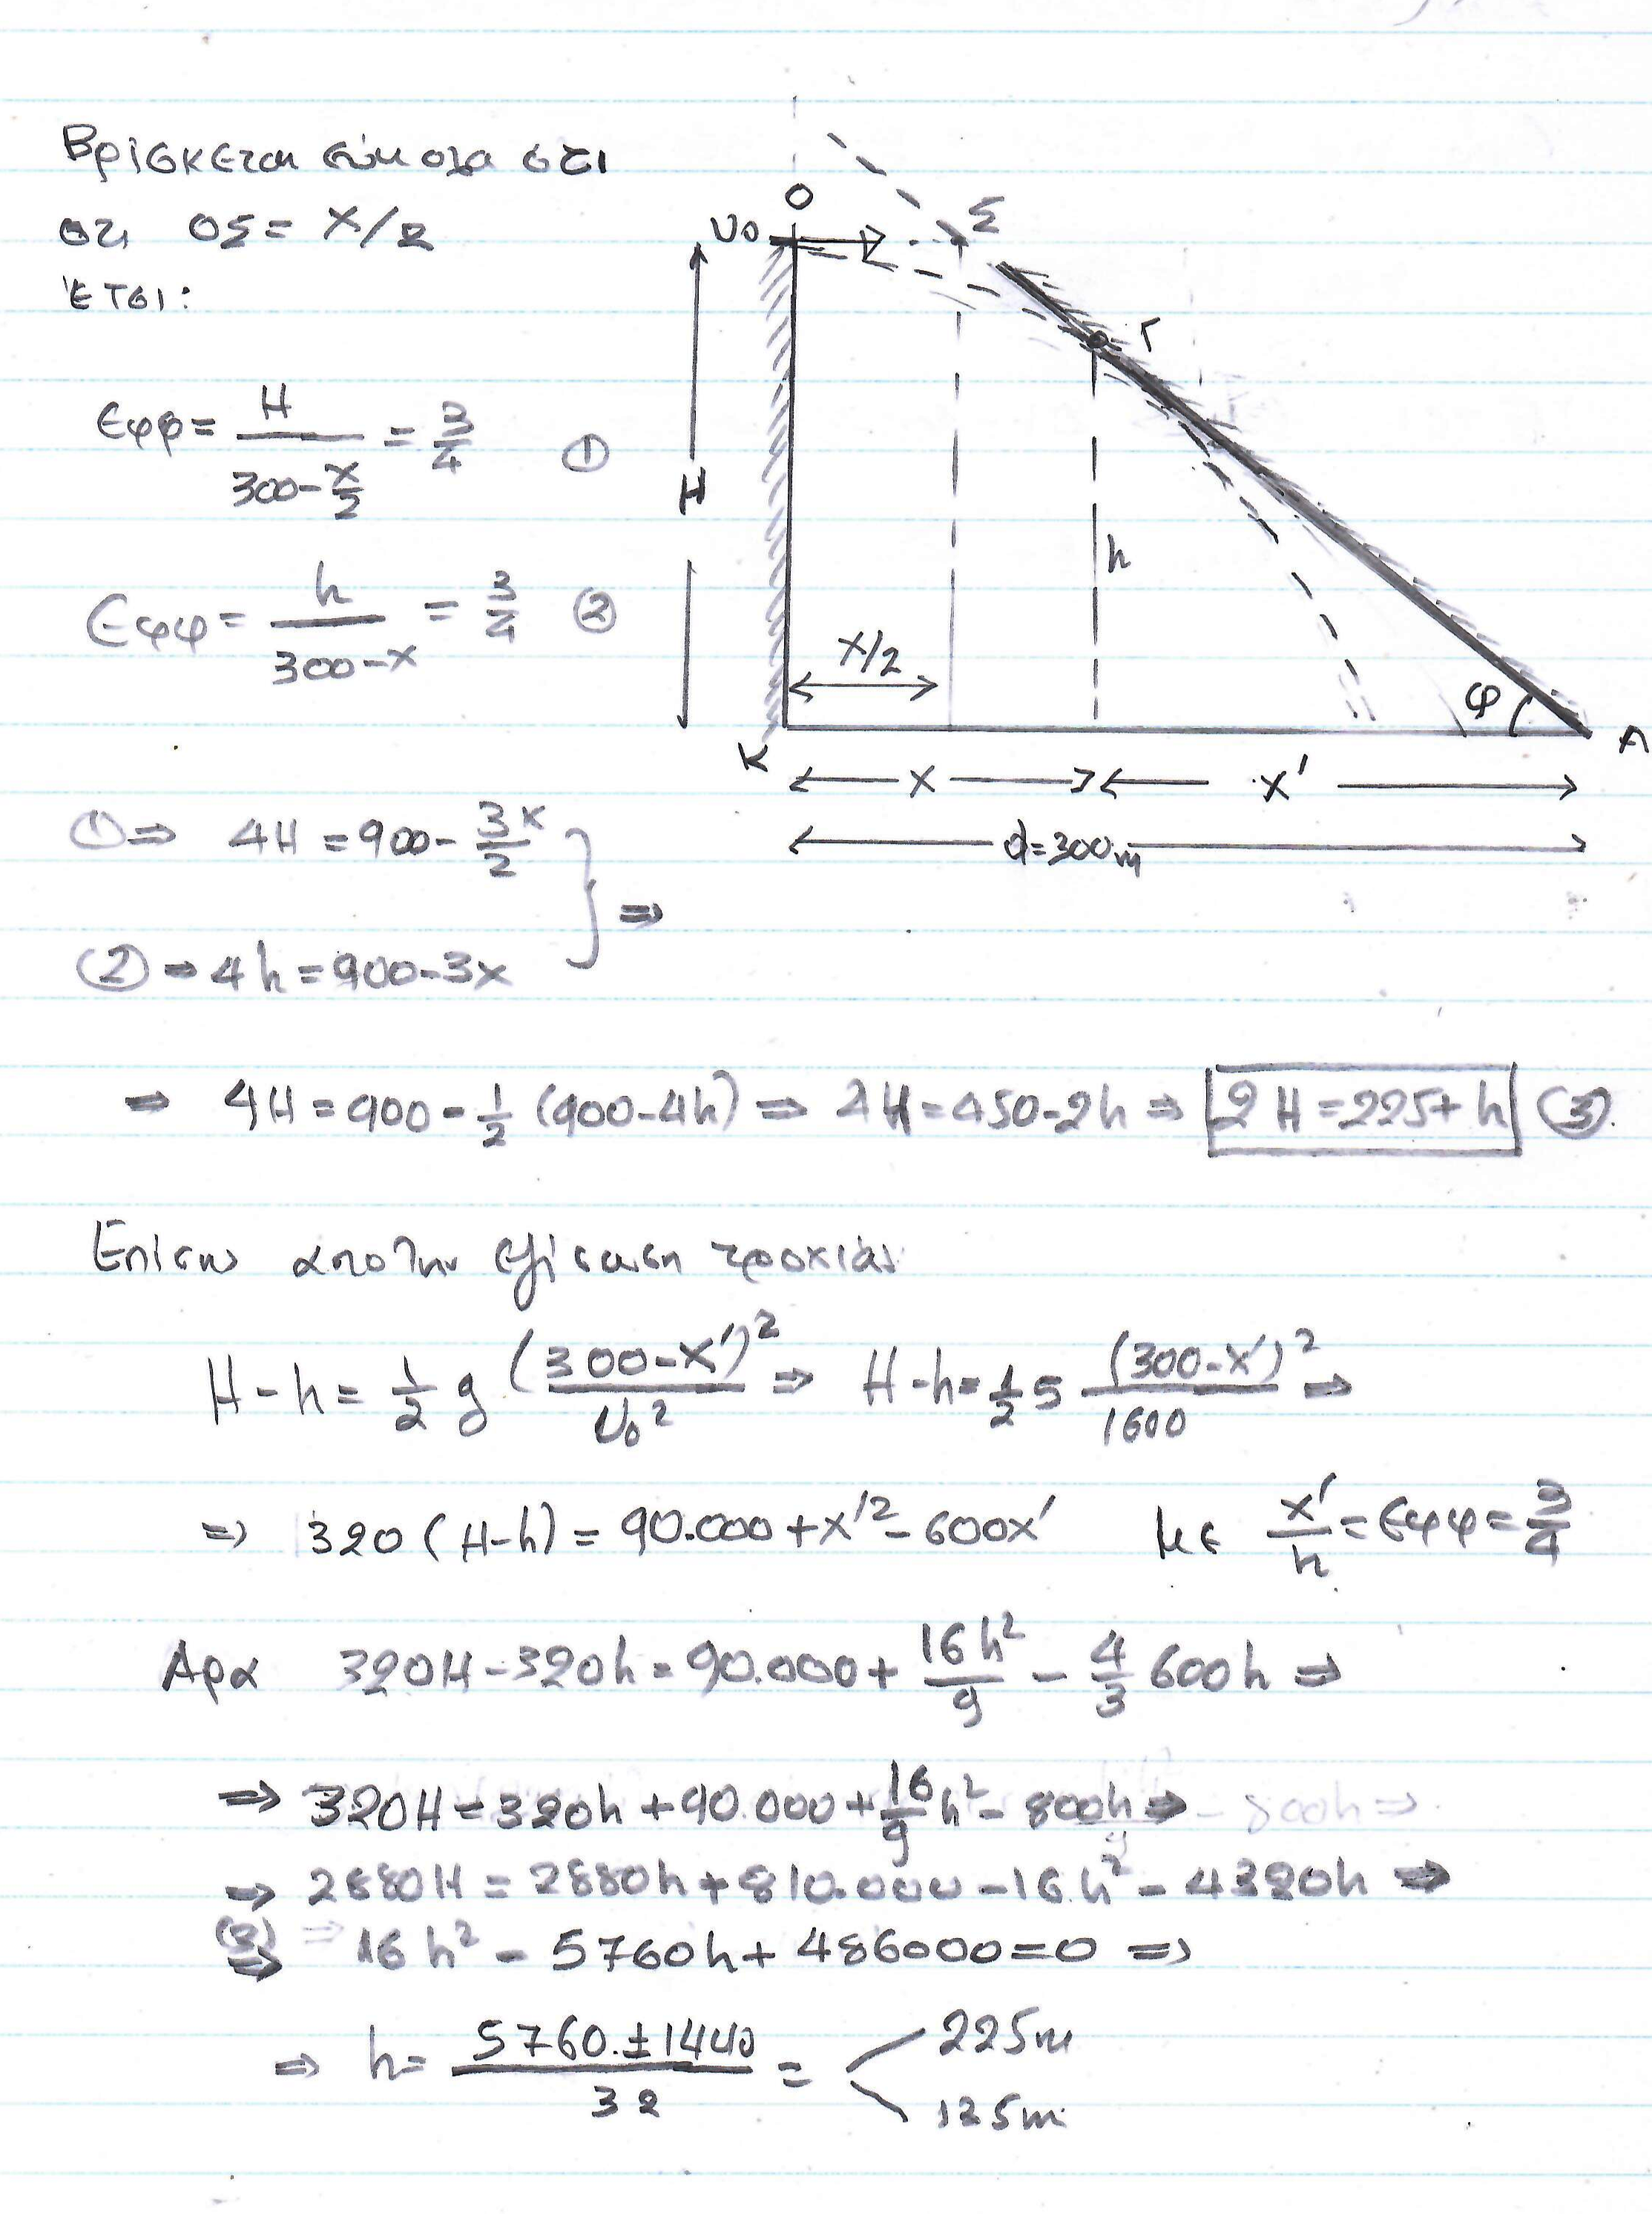 Βρίσκεται εύκολα ότι
οτι ΟΣ = x/2
Έτσι:
O
υ₀
Σ
Γ
H
h
x/2
φ
K
A
x
x'
d=300m
εφφ = H/(300-x/2) = 3/4 ①
εφφ = h/(300-x) = 3/4 ②
①⇒ 4H = 900 - 3x/2
⇒
②⇒ 4h = 900-3x
⇒ 4H = 900 - 1/2 (900-4h) ⇒ 4H = 450-2h ⇒ 2H = 225+h (3).
Επίσης από την εξίσωση τροχιάς:
H-h = 1/2 g (300-x')²/υ₀² ⇒ H-h = 1/2 5 (300-x')²/1600 ⇒
⇒ 320(H-h) = 90.000+x'²-600x' με x'/h = εφφ = 3/4
Αρα 320H-320h = 90.000 + 16h²/9 - 4/3 600h ⇒
⇒ 320H = 320h + 90.000 + 16/9 h² - 800h ⇒ - 800h ⇒
⇒ 2880H = 2880h + 810.000 - 16h² - 4320h ⇒
(3) ⇒ 16h² - 5760h + 486000 = 0 ⇒
⇒ h = (5760 ± 1440)/32 =
225m
125m